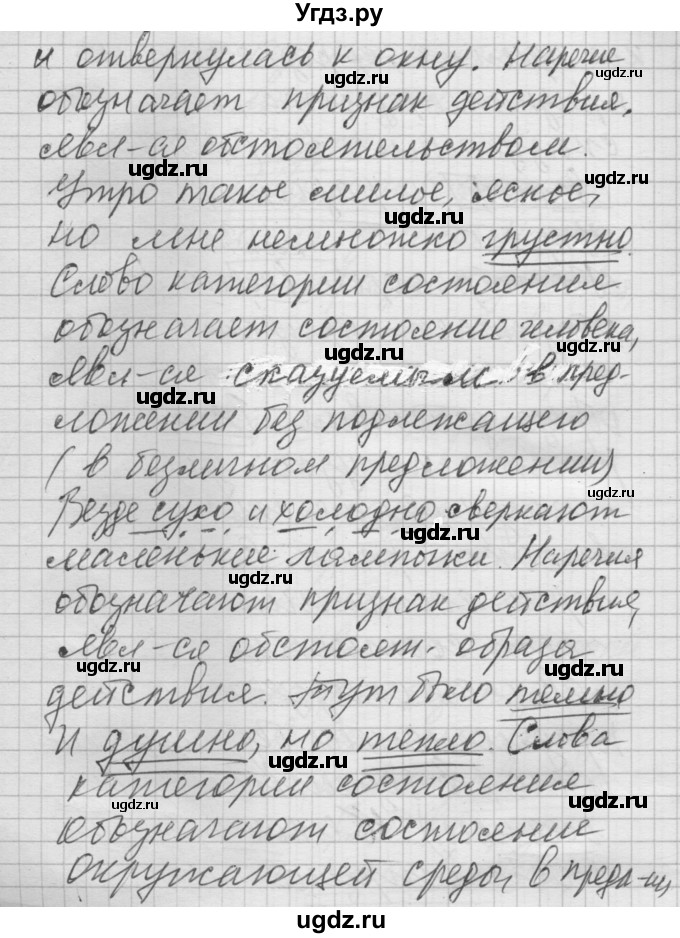 Угдз.ру
и отвернулась к окну. Наречие
обозначает признак действия,
явл-ся обстоятельством.
Утро такое милое, ясное,
но мне немножко грустно.
Слово категории состояния
обозначает состояние человека,
явл-ся сказуемым в пред-
ложении без подлежащего
(в безличном предложении)
Везде сухо и холодно сверкают
маленькие лампочки. Наречия
обозначают признак действия,
явл-ся обстоят. образа
действия. Тут было темно
И душно, но тепло. Слова
категории состояния
обозначают состояние
окружающей среды в предл-ии,
ugdz.ru